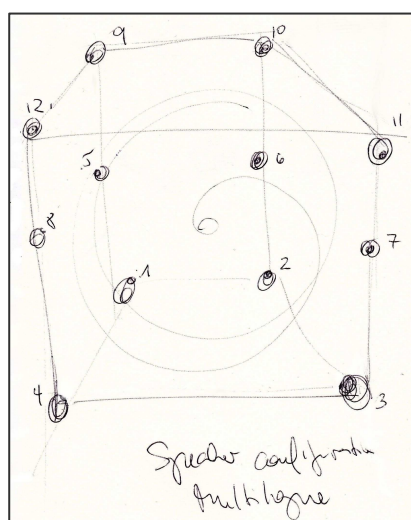 9 10
12 11
5 6
8 7
1 2
4 3
Speaker configuration
Multilogue